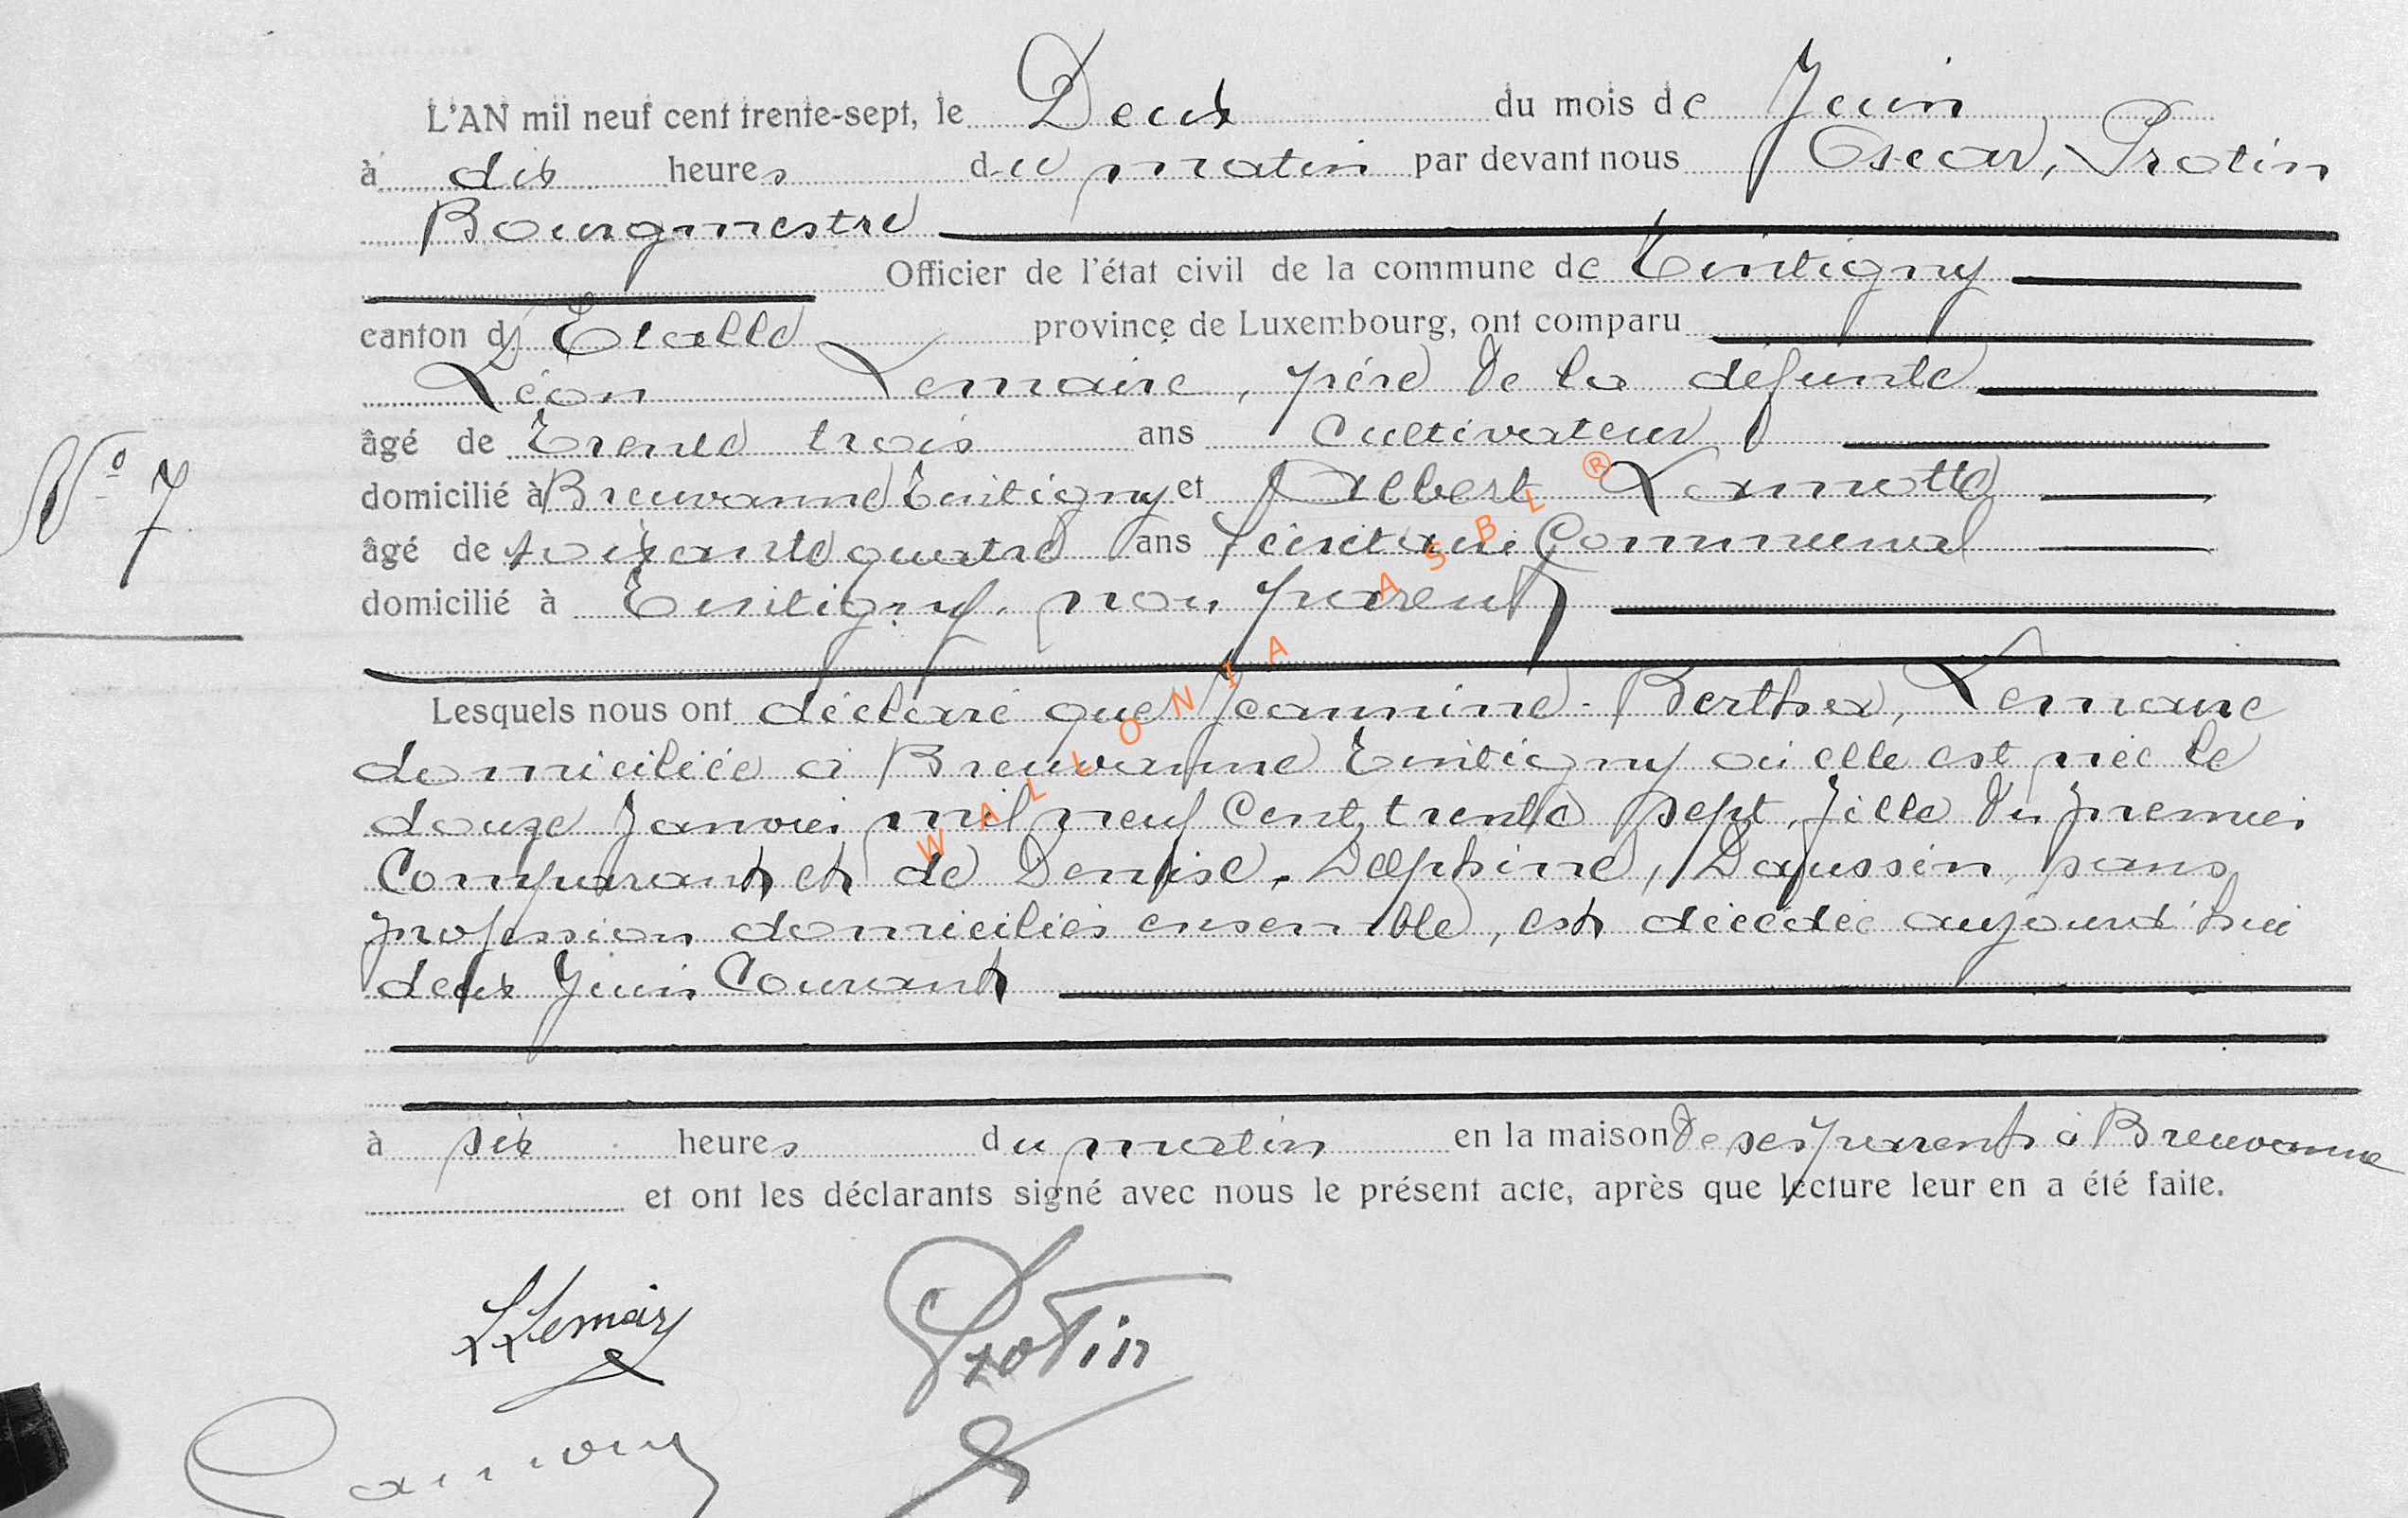 L'AN mil neuf cent trente-sept, le Deux du mois de Juin
à dix heures du matin par devant nous Oscar, Protin
Bourgmestre
Officier de l'état civil de la commune de Tintigny
canton d'Etalle province de Luxembourg, ont comparu
Léon Lemaire, père de la défunte
âgé de Trente trois ans Cultivateur
N° 7
domicilié à Breuvanne Tintigny et Albert Lamotte
âgé de soixante quatre ans Secrétaire Communal
domicilié à Tintigny, non parent
Lesquels nous ont déclaré que Jeannine-Bertha, Lemaire
domiciliée à Breuvanne Tintigny où elle est née le
douze Janvier mil neuf Cent trente sept, fille du premier
Comparant et de Denise, Delphine, sans
profession domiciliés ensemble, est décédée aujourd'hui
deux Juin Courant
à six heures du matin en la maison de ses parents à Breuvanne
et ont les déclarants signé avec nous le présent acte, après que lecture leur en a été faite.
LLemaire Protin
WALLONIA ASBL ®